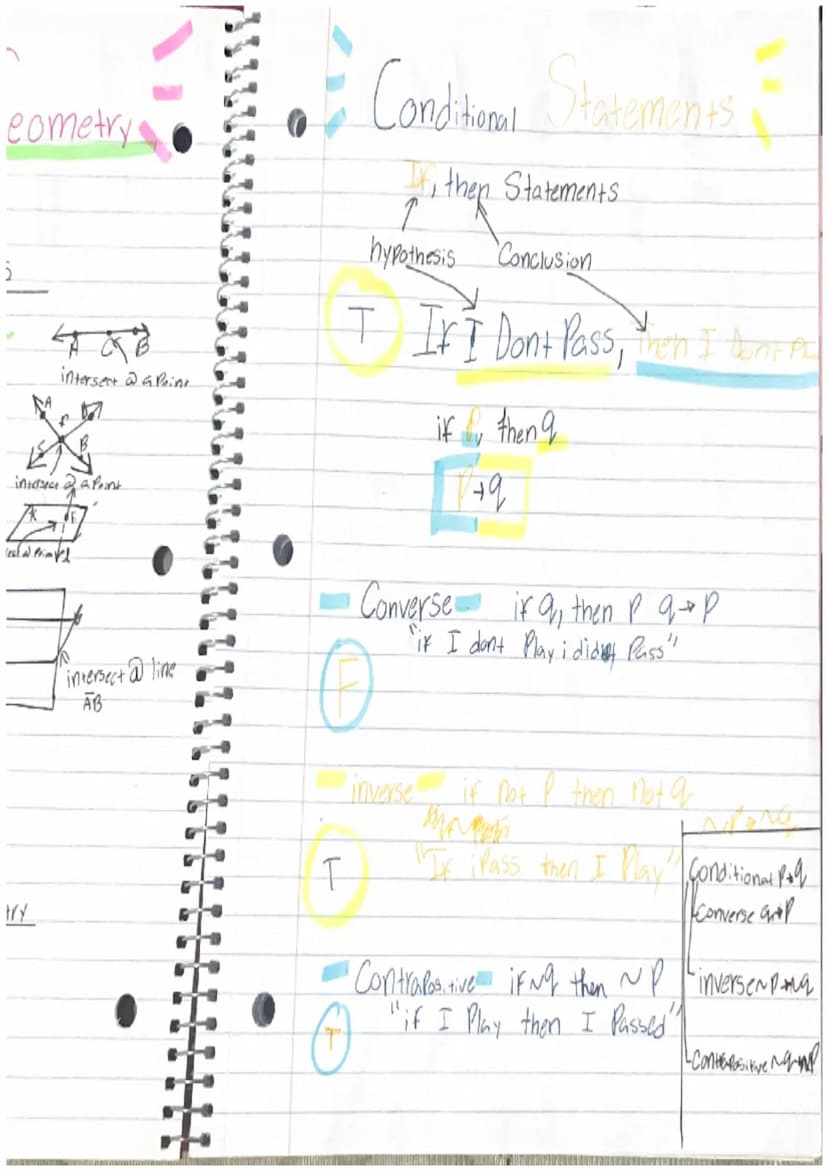 eometry
A C B
intersect @ a Point
A D
S B
intersect @ a Point
K F
intersect @ line
AB
try
Conditional Statements
If, then Statements
hypothesis Conclusion
T If I Dont Pass, then I Dont
if P, then q
P→q
Converse if q, then P q→P
"if I dont Play i didnt Pass"
F
inverse if not P then not q
~P→~q
"If iPass then I Play"
T
Contrapositive if ~q then ~P
"if I Play then I Passed"
T
Conditional P→q
Converse q→P
inverse ~P→~q
Contrapositive ~q→~P